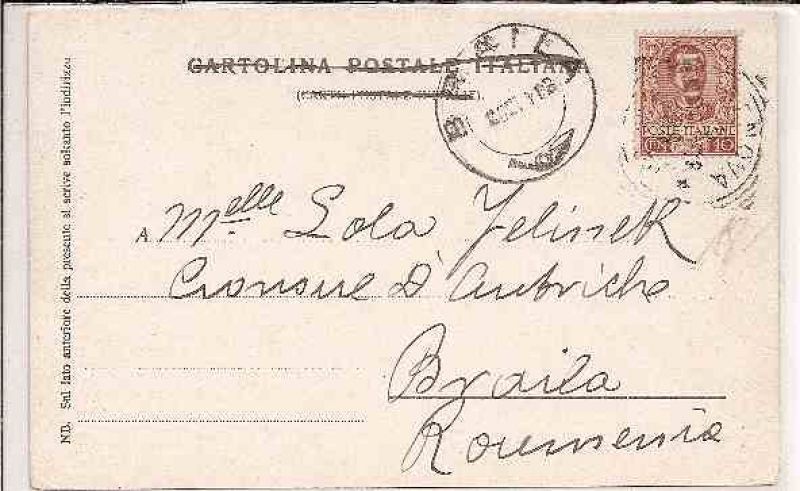 CARTOLINA POSTALE ITALIANA
BRAILA
POSTE ITALIANE
10
A Melle Lola Jelinek
Consule D'Autriche
Braila
Roumenie
NB. Sul lato anteriore della presente si scrive soltanto l'indirizzo